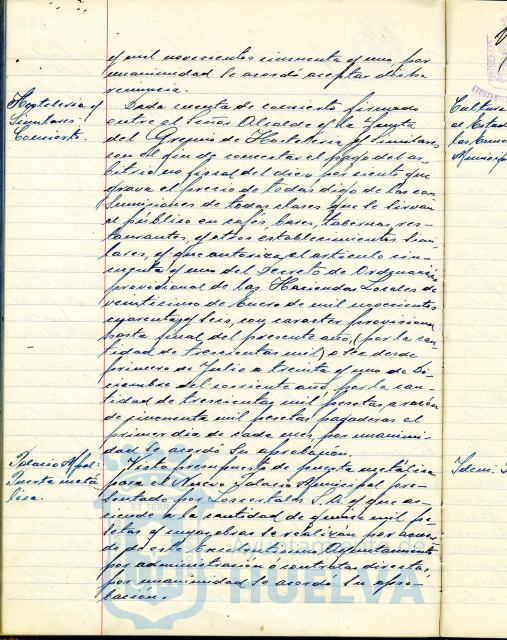 y mil novecientos cincuenta y uno, por
unanimidad se acordó aceptar dicha
renuncia.
Hostelería y
Similares.
Concierto.
Dada cuenta de concierto firmado
entre el Señor Alcalde y la Junta
del Gremio de Hostelería y Similares
con el fin de concertar el pago del ar-
bitrio no fiscal del diez por ciento que
grava el precio de todas digo de las con-
sumiciones de todas clases que se sirvan
al público en cafés, bares, tabernas, res-
taurantes, y otros establecimientos simi-
lares, y que autoriza el artículo cin-
cuenta y uno del Decreto de Ordenación
provisional de las Haciendas Locales de
veinticinco de Enero de mil novecientos
cuarenta y seis, con carácter provisional
hasta final del presente año, (por la can-
tidad de trescientas mil) o sea desde
primero de Julio a treinta y uno de Di-
ciembre del corriente año, por la can-
tidad de trescientas mil pesetas, a razón
de cincuenta mil pesetas pagaderas al
primer día de cada mes, por unanimi-
dad se acordó su aprobación.
Palacio Mpal.
Puerta metá-
lica.
Visto presupuesto de puerta metálica
para el Nuevo Palacio Municipal pre-
sentado por Loscertales S.A. y que as-
ciende a la cantidad de quince mil pe-
setas y cuyas obras se realizarán por acuer-
do de este Excelentísimo Ayuntamiento
por administración o contratas directas,
por unanimidad se acordó su apro-
bación.
Cultura
al Estad
Municip
Idem.
HUELVA